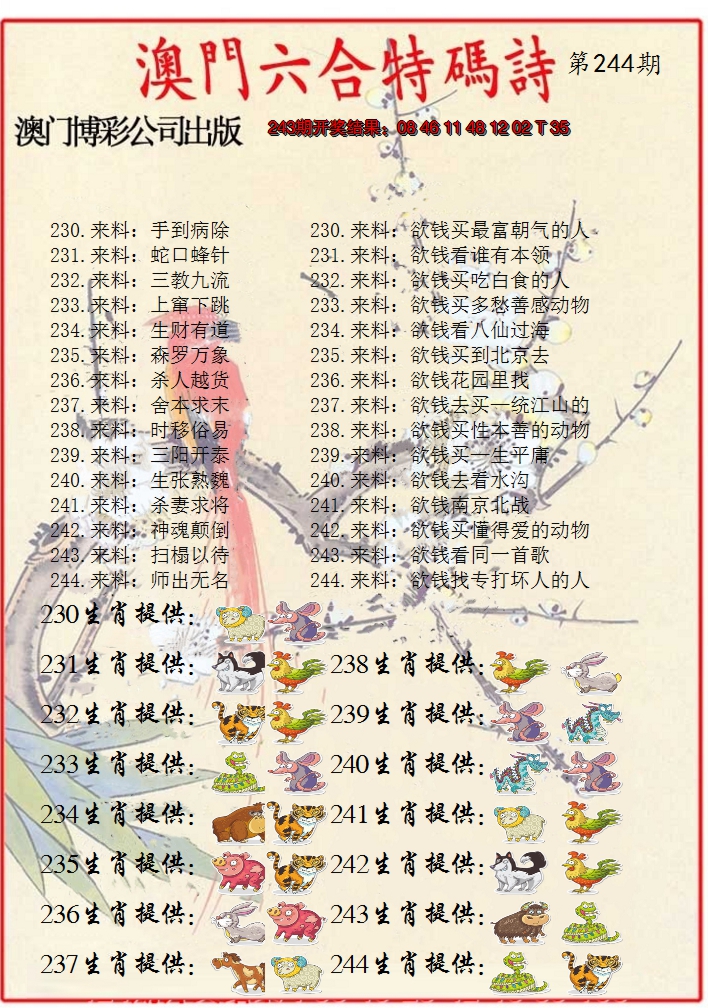 澳門六合特碼詩 第244期
澳门博彩公司出版 243期开奖结果：08 46 11 48 12 02 T 35
230.来料：手到病除 230.来料：欲钱买最富朝气的人
231.来料：蛇口蜂针 231.来料：欲钱看谁有本领
232.来料：三教九流 232.来料：欲钱买吃白食的人
233.来料：上窜下跳 233.来料：欲钱买多愁善感动物
234.来料：生财有道 234.来料：欲钱看八仙过海
235.来料：森罗万象 235.来料：欲钱买到北京去
236.来料：杀人越货 236.来料：欲钱花园里找
237.来料：舍本求末 237.来料：欲钱去买一统江山的
238.来料：时移俗易 238.来料：欲钱买性本善的动物
239.来料：三阳开泰 239.来料：欲钱买一生平庸
240.来料：生张熟魏 240.来料：欲钱去看水沟
241.来料：杀妻求将 241.来料：欲钱南京北战
242.来料：神魂颠倒 242.来料：欲钱买懂得爱的动物
243.来料：扫榻以待 243.来料：欲钱看同一首歌
244.来料：师出无名 244.来料：欲钱找专打坏人的人
230生肖提供：
231生肖提供： 238生肖提供：
232生肖提供： 239生肖提供：
233生肖提供： 240生肖提供：
234生肖提供： 241生肖提供：
235生肖提供： 242生肖提供：
236生肖提供： 243生肖提供：
237生肖提供： 244生肖提供：